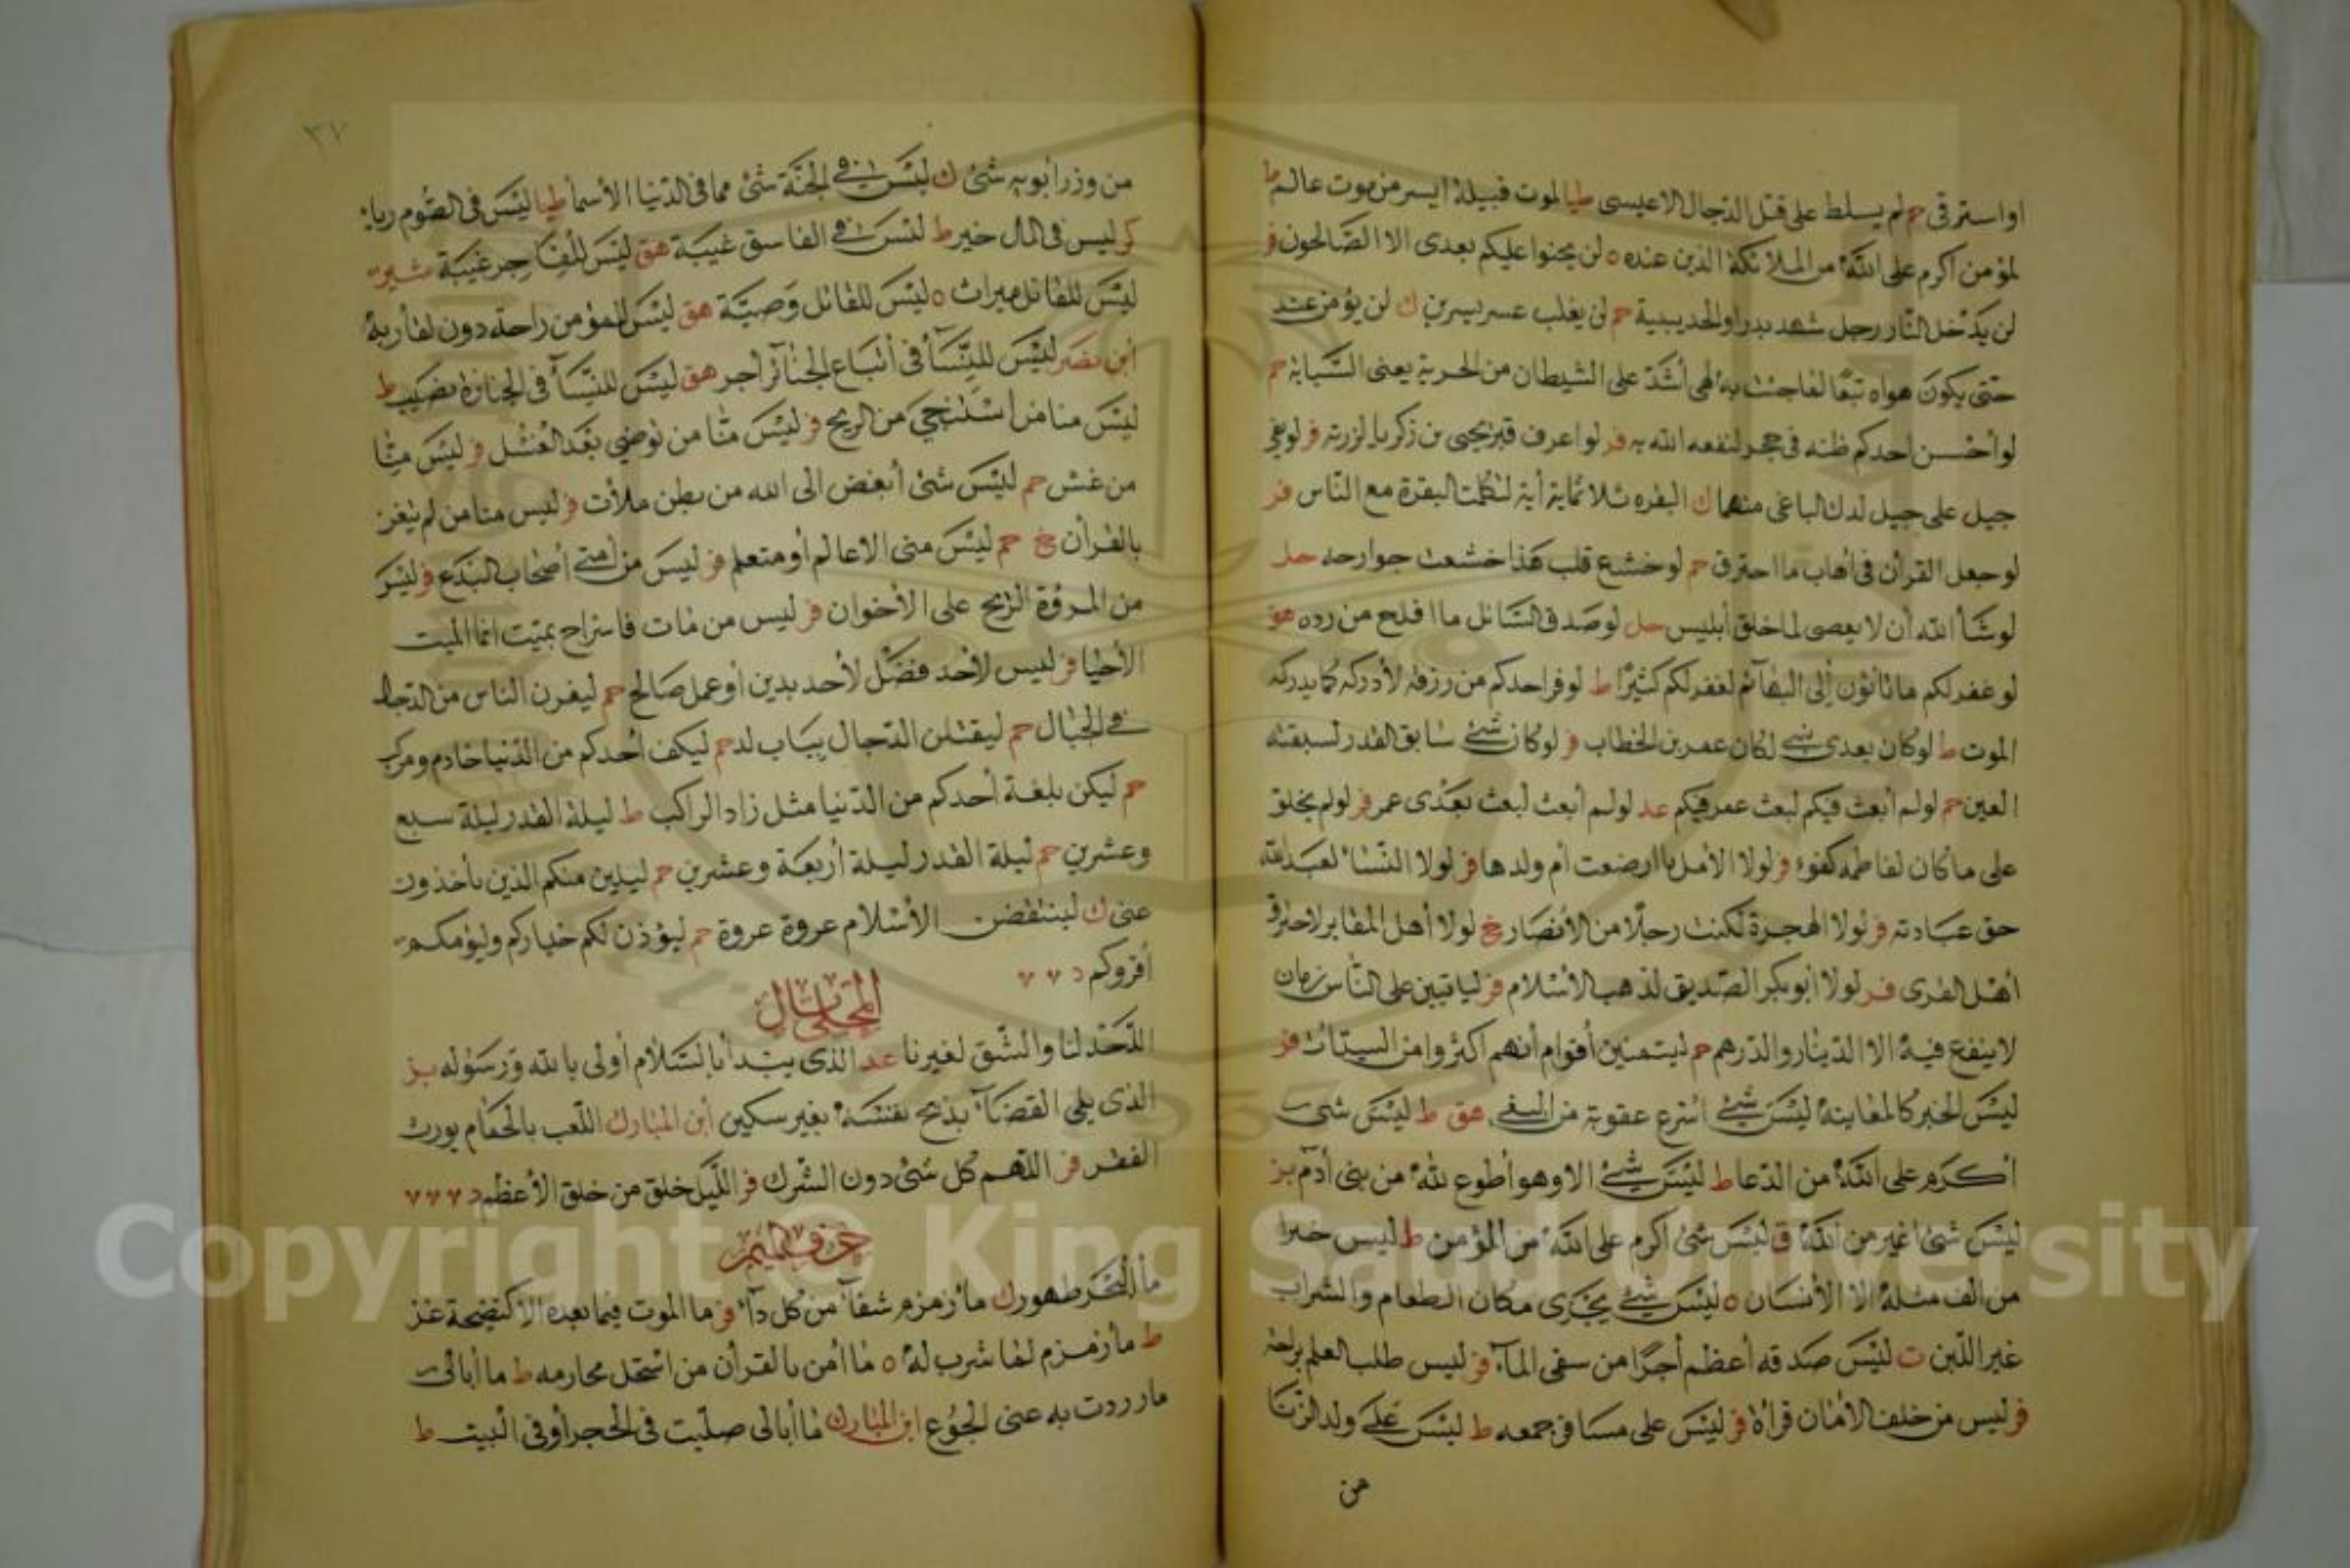 او استرقى حم لم يسلط على قتل الدجال الا عيسى طيا لموت قبيلة ايسر من موت عالم ط
لمؤمن اكرم على الله من الملائكة الذين عنده ه لن يحنوا عليكم بعدى الا الصالحون فر
لن يدخل النار رجل شهد بدرا والحديبية حم لن يغلب عسر يسرين ك لن يؤمن عبد
حتى يكون هواه تبعا لما جئت به لهى أشد على الشيطان من الحربة يعنى السبابة حم
لو أحسن أحدكم ظنه فى حجر لنفعه الله به فر لو اعرف قبر يحيى بن زكريا لزرته فر لو بغى
جبل على جبل لدك الباغى منهما ك البقره ثلاثماية أية لتكلمت البقرة مع الناس فر
لو جعل القرأن فى أهاب ما احترق حم لو خشع قلب هذا خشعت جوارحه حل
لو شأ الله أن لا يعصى لما خلق أبليس حل لو صدق السائل ما افلح من رده هق
لو غفر لكم ما تاتون إلى البهآئم لغفر لكم كثيرا ط لو فر احدكم من رزقه لأدركه كما يدركه
الموت ط لو كان بعدى نبى لكان عمر بن الخطاب فر لو كان شئ سابق القدر لسبقته
العين حم لو لم أبعث فيكم لبعث عمر فيكم عد لو لم أبعث لبعث بعدى عمر فر لو لم يخلق
على ما كان لفاطمه كفوء فر لولا الأمل ما ارضعت أم ولدها فر لولا النسا لعبد الله
حق عبادته فر لولا الهجرة لكنت رجلا من الأنصار خ لولا أهل المقابر لاحترق
أهل القرى فر لولا أبو بكر الصديق لذهب الأسلام فر لياتين على الناس زمان
لا ينفع فيه الا الدينار والدرهم حم ليتمنين أقوام أنهم اكثروا من السيئات فر
ليس الخبر كالمعاينة ليس شئ اسرع عقوبة من البغى هق ط ليس شى
أكرم على الله من الدعا ط ليس شئ الا وهو أطوع لله من بنى أدم بز
ليس شئ اغير من الله ق ليس شئ اكرم على الله من المؤمن ط ليس خيرا
من الف مثله الا الأنسان ه ليس شئ يجزى مكان الطعام والشراب
غير اللبن ت ليس صدقه أعظم أجرا من سقى المآء فر ليس طلب العلم براحة
فر ليس من خلف الأمان قرأة فر ليس على مسافر جمعه ط ليس على ولد الزنا
من
٣٧
من وزر أبويه شئ ك ليس فى الجنة شئ مما فى الدنيا الا الأسمأ طيا ليس فى الصوم ريا
كر ليس فى المال خير ط ليس فى الفاسق غيبة هق ليس للفاجر غيبة شير
ليس للقاتل ميراث ه ليس للقاتل وصية هق ليس للمؤمن راحة دون لقأ ربه
أبن نصر ليس للنسآ فى أتباع الجنائز أجر هق ليس للنسآ فى الجنازة نصيب ط
ليس منا من استنجى من الريح فر ليس منا من توضى بعد الغسل فر ليس منا
من غش حم ليس شئ أبغض الى الله من بطن ملأت فر ليس منا من لم يتغن
بالقرأن خ حم ليس منى الا عالم أو متعلم فر ليس من أمتى أصحاب البدع فر ليس
من المروة الربح على الأخوان فر ليس من مات فاستراح بميت انما الميت
الأحيا فر ليس لأحد فضل لأحد بدين أو عمل صالح حم ليفرن الناس من الدجال
فى الجبال حم ليقتلن الدجال بباب لد حم ليكف أحدكم من الدنيا خادم ومركب
حم ليكن بلغة أحدكم من الدنيا مثل زاد الراكب ط ليلة القدر ليلة سبع
وعشرين حم ليلة القدر ليلة أربعة وعشرين حم ليلين منكم الذين ياخذون
عنى ك لينتقضن الأسلام عروة عروة حم ليؤذن لكم خياركم وليؤمكم
أقروكم د
المحلى بال
اللحد لنا والشق لغيرنا عد الذى يبتدأ بالسلام أولى بالله ورسوله بز
الذى يلى القضآ يذبح نفسه بغير سكين أبن المبارك اللعب بالحمام يورث
الفقر فر اللهم كل شئ دون الشرك فر الليل خلق من خلق الأعظم د
حرف الميم
مأ البحر طهور ك مأ زمزم شفآ من كل دآ فر ما الموت فيما بعده الا كنضحة عنز
ط مأ زمزم لما شرب له ه ما أمن بالقرأن من استحل محارمه ط ما أبالى
ما رددت به عنى الجوع ابن المبارك ما أبالى صليت فى الحجر أو فى البيت ط
Copyright © King Saud University